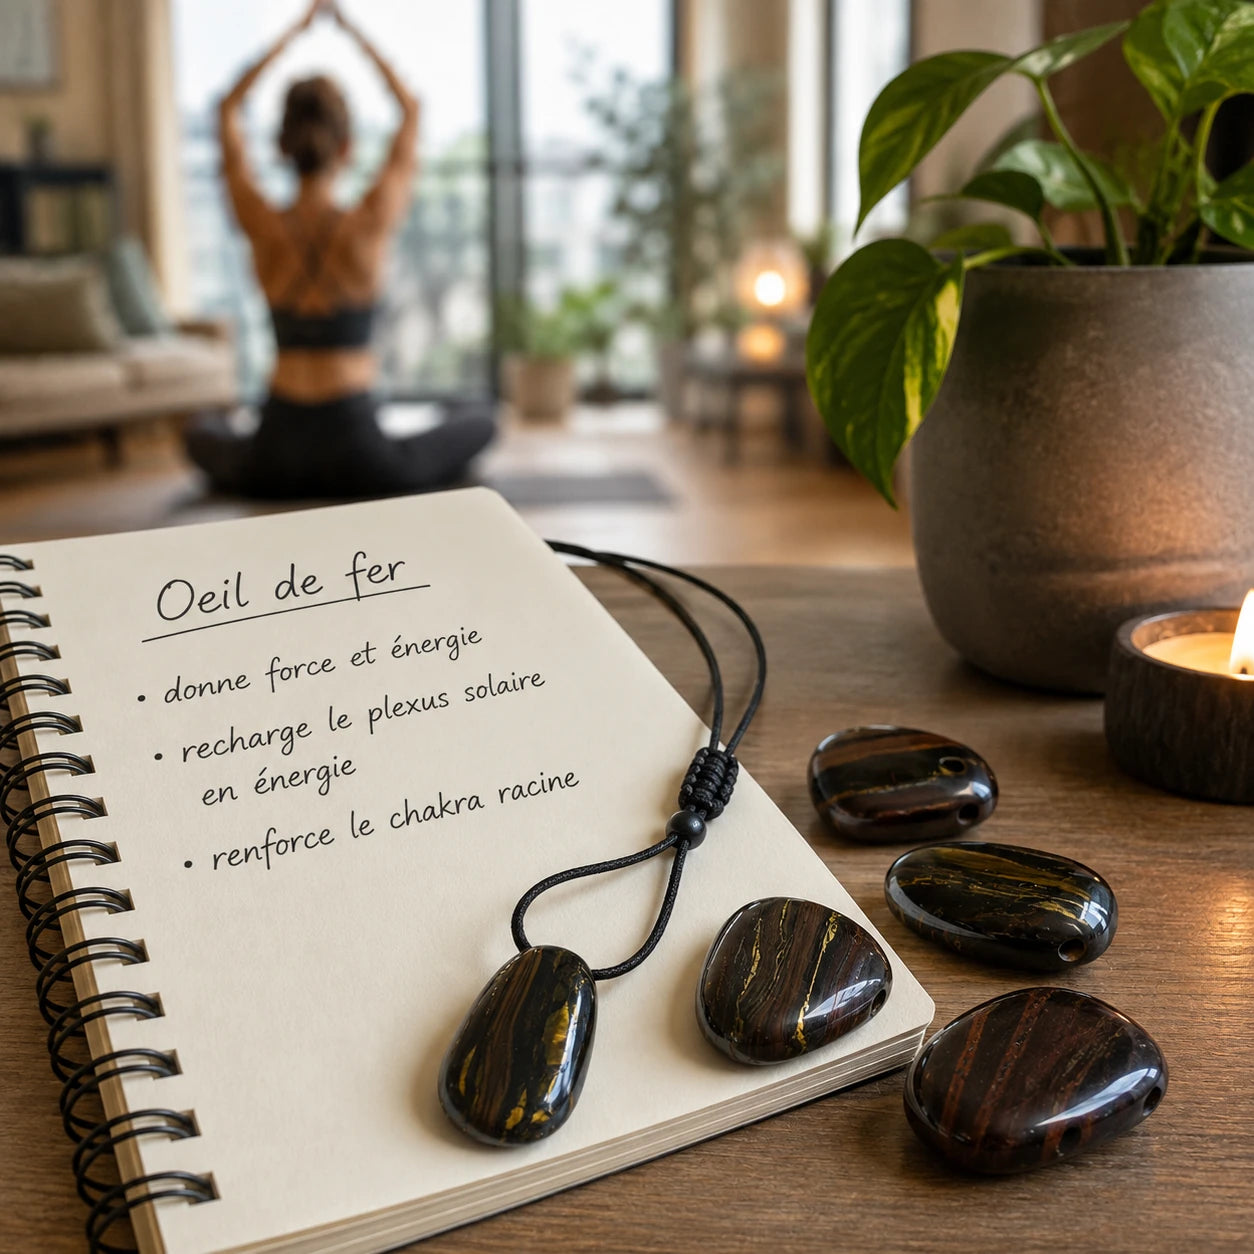 Oeil de fer
• donne force et énergie
• recharge le plexus solaire
en énergie
• renforce le chakra racine